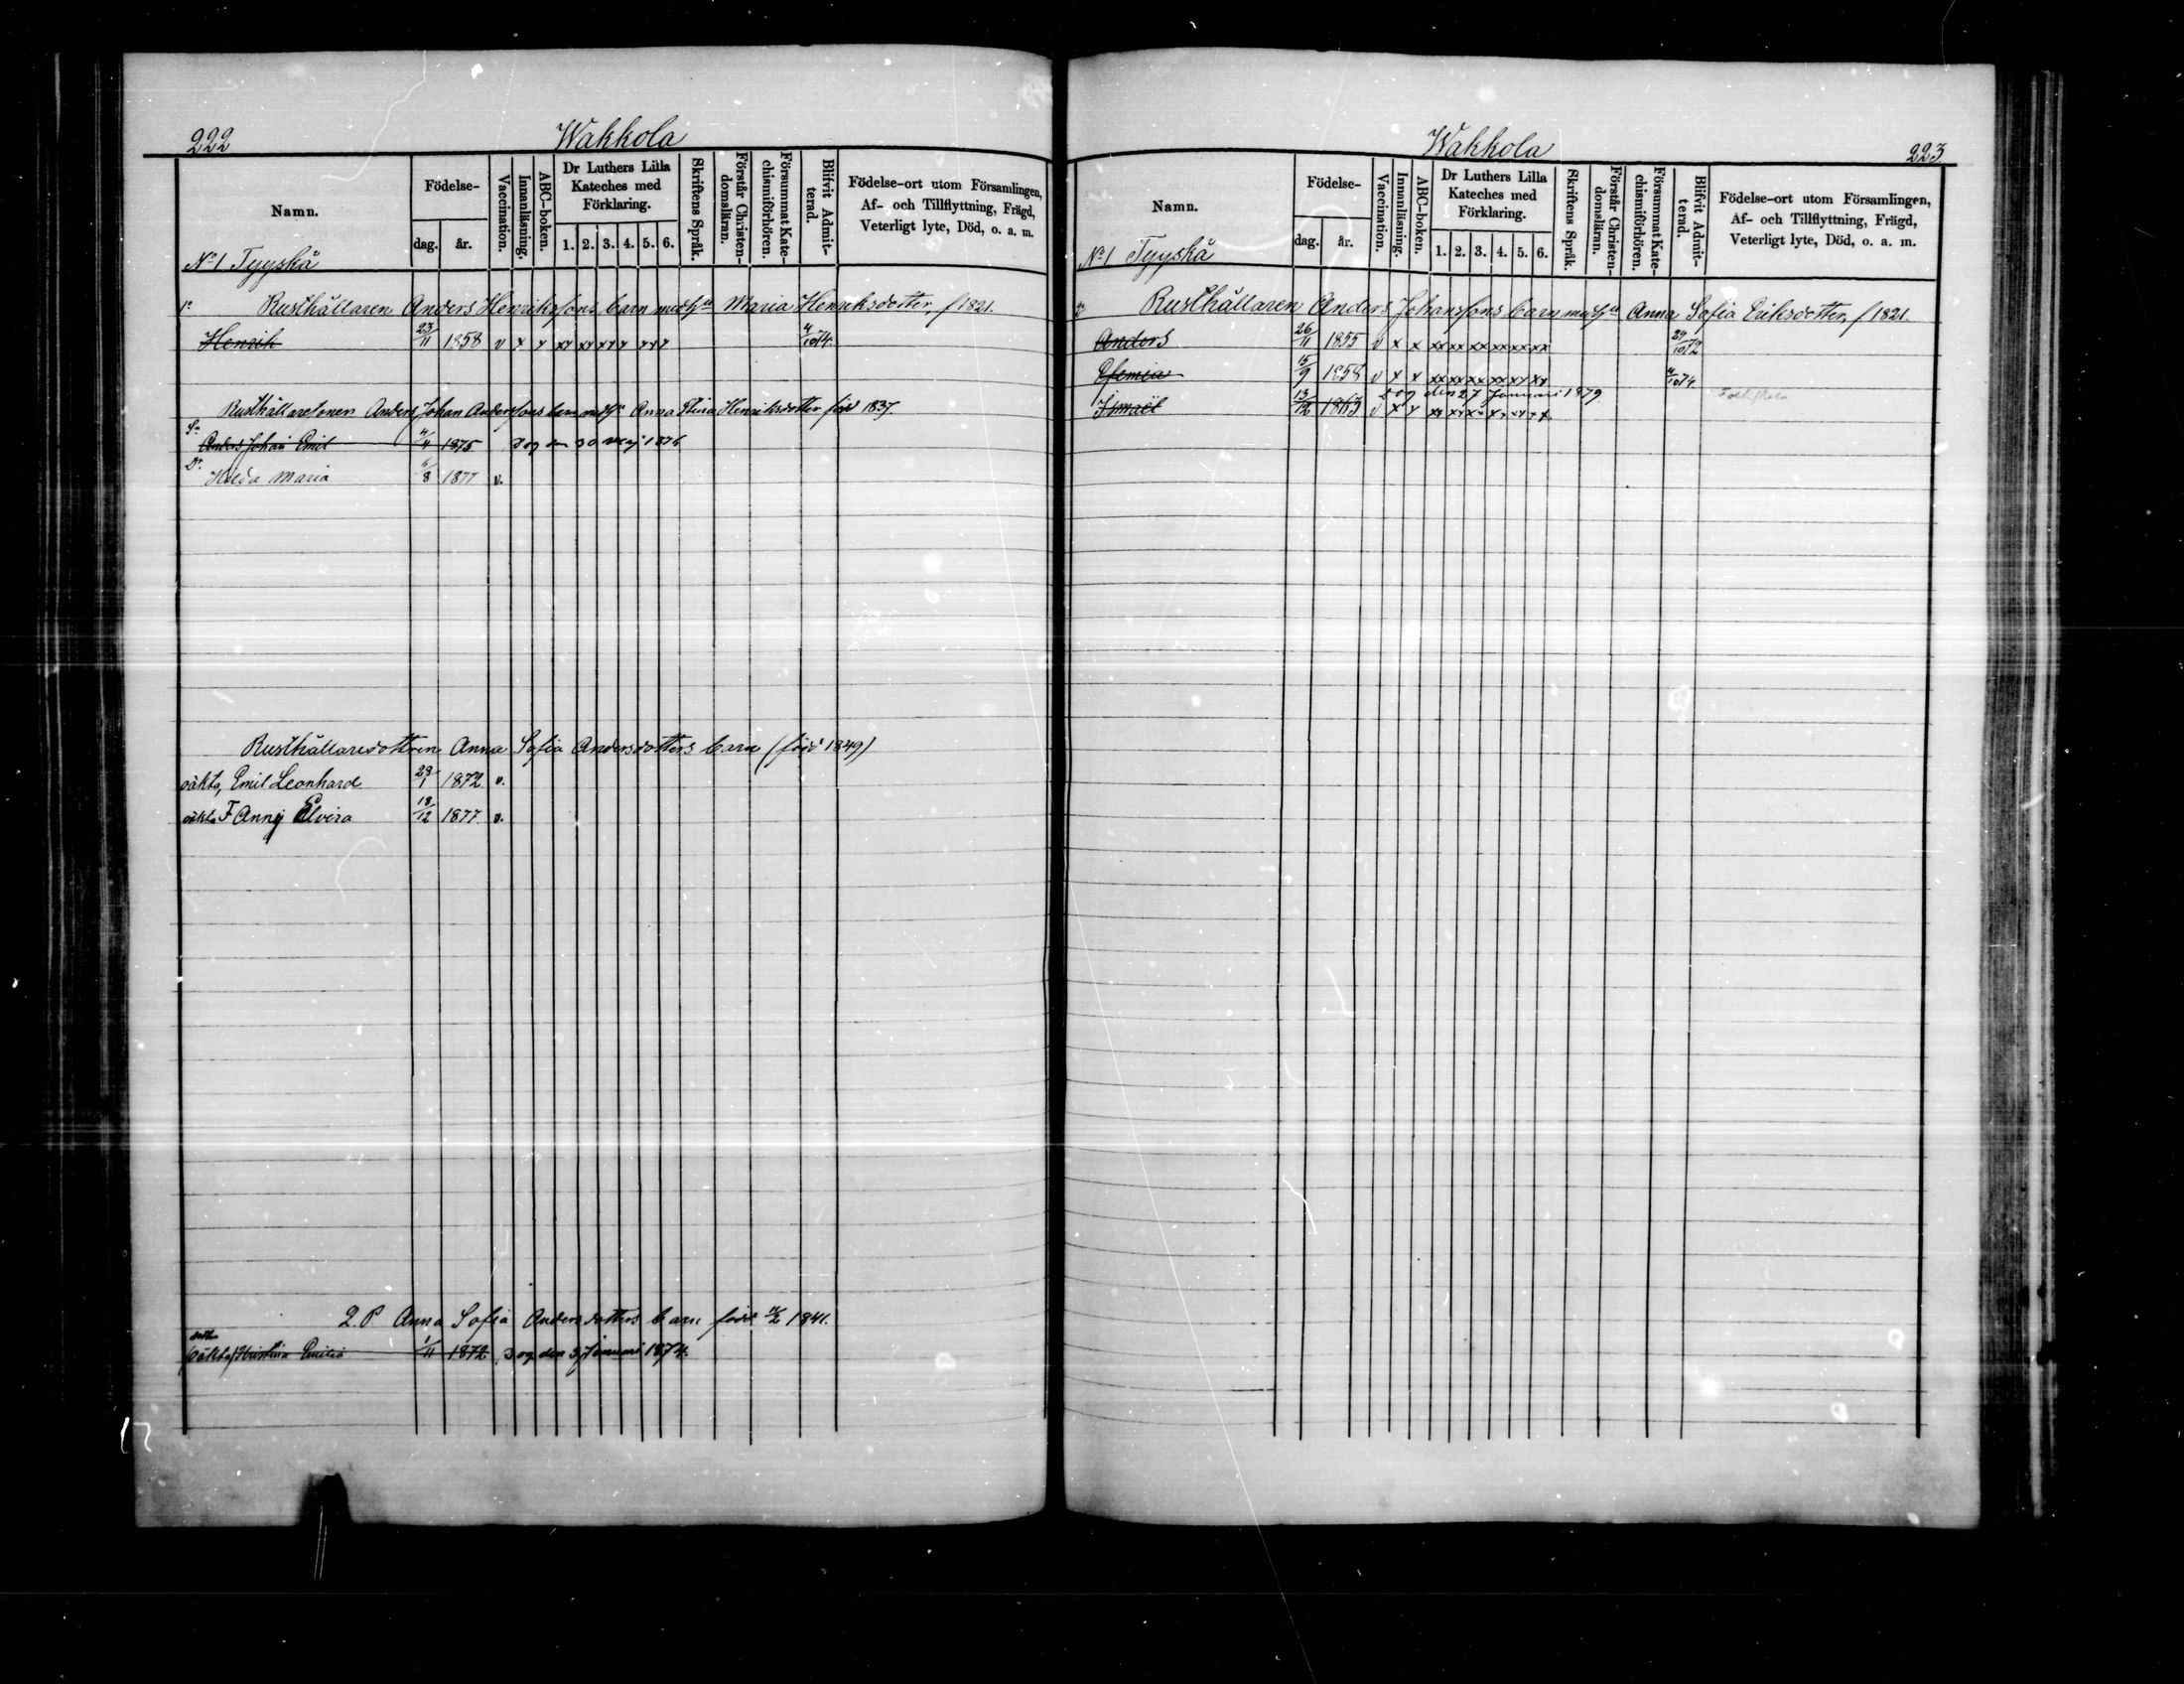 222
Wakkola
Namn.
Födelse-
dag.
år.
Vaccination.
Innanläsning.
ABC-boken.
Dr Luthers Lilla
Kateches med
Förklaring.
1. 2. 3. 4. 5. 6.
Skriftens Språk.
Förstår Christen-
domsläran.
Försummat Kate-
chismiförhören.
Blifvit Admit-
terad.
Födelse-ort utom Församlingen,
Af- och Tillflyttning, Frägd,
Veterligt lyte, Död, o. a. m.
No 1 Tyyskä
Rusthållaren Anders Henrikssons barn med hu Maria Henriksdotter, f 1821.
Henrik 23/11 1858 v x x xx xx xx x xxx 4/10 74.
Rusthållaresonen Anders Johan Anderssons barn med hu Anna Stina Henriksdotter född 1837.
Sn
Anders Johan Emil 4/11 1875 dog den 30 Maj 1876
Dr.
Hilda Maria 6/8 1877 v.
Rusthållaredottren Anna Sofia Andersdotters barn (född 1849)
oäkta, Emil Leonhard 29/1 1872 v.
oäkta F Anny Elvira 18/12 1877. v.
2. P Anna Sofia Andersdotters barn född 11/2 1841.
(oäkta) Kristina Emilia 1/11 1872 dog den 3 Januari 1874.
Wakkola
223
Namn.
Födelse-
dag.
år.
Vaccination.
Innanläsning.
ABC-boken.
Dr Luthers Lilla
Kateches med
Förklaring.
1. 2. 3. 4. 5. 6.
Skriftens Språk.
Förstår Christen-
domsläran.
Försummat Kate-
chismiförhören.
Blifvit Admit-
terad.
Födelse-ort utom Församlingen,
Af- och Tillflyttning, Frägd,
Veterligt lyte, Död, o. a. m.
No 1 Tyyskä
Rusthållaren Anders Johanssons barn med hu Anna Sofia Eriksdotter, f 1821.
Anders 26/11 1855 v x x xx xx xx xx xx xx 29/10 72
Efemia 15/9 1858 v x x xx xx xx xx xx xx 4/10 74
dog den 27 Januari 1879.
Ismaël 13/12 1863 v x x xx xx xx xx xx xx